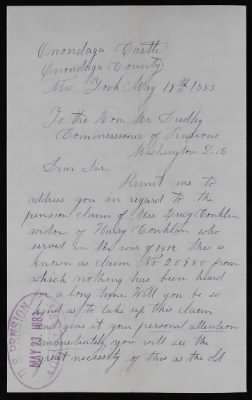 Onondaga Castle
Onondaga County
New York May 18th 1883
To the Hon. Mr Dudley
Commissioner of Pensions
Washington D.C
Dear Sir.
Permit me to
address you in regard to the
pension claim of Mrs Conklin
widow of Harry Conklin who
served in the war of 1812 this is
known as claim No 20840 from
which nothing has been heard
in a long time Will you be so
kind as to take up this claim
and give it your personal attention
immediately you will see the
great necessity of this as the old
U.S. PENSION
MAY 23 1883